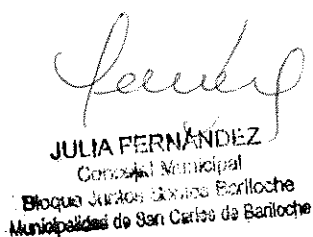 JULIA FERNÁNDEZ
Concejal Municipal
Bloque Juntos Somos Bariloche
Municipalidad de San Carlos de Bariloche